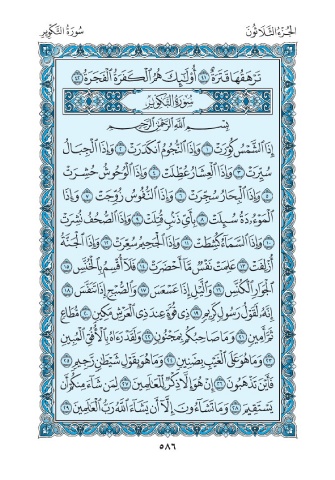 سُورَةُ التَّكْوِيرِ الجُزءُ الثَّلَاثُونَ
تَرْهَقُهَا قَتَرَةٌ ٤١ أُوْلَٰٓئِكَ هُمُ ٱلْكَفَرَةُ ٱلْفَجَرَةُ ٤٢
سُورَةُ التَّكْوِيرِ
بِسْمِ ٱللَّهِ ٱلرَّحْمَٰنِ ٱلرَّحِيمِ
إِذَا ٱلشَّمْسُ كُوِّرَتْ ١ وَإِذَا ٱلنُّجُومُ ٱنكَدَرَتْ ٢ وَإِذَا ٱلْجِبَالُ
سُيِّرَتْ ٣ وَإِذَا ٱلْعِشَارُ عُطِّلَتْ ٤ وَإِذَا ٱلْوُحُوشُ حُشِرَتْ
٥ وَإِذَا ٱلْبِحَارُ سُجِّرَتْ ٦ وَإِذَا ٱلنُّفُوسُ زُوِّجَتْ ٧ وَإِذَا
ٱلْمَوْءُۥدَةُ سُئِلَتْ ٨ بِأَيِّ ذَنۢبٍ قُتِلَتْ ٩ وَإِذَا ٱلصُّحُفُ نُشِرَتْ
١٠ وَإِذَا ٱلسَّمَآءُ كُشِطَتْ ١١ وَإِذَا ٱلْجَحِيمُ سُعِّرَتْ ١٢ وَإِذَا ٱلْجَنَّةُ
أُزْلِفَتْ ١٣ عَلِمَتْ نَفْسٌ مَّآ أَحْضَرَتْ ١٤ فَلَآ أُقْسِمُ بِٱلْخُنَّسِ ١٥
ٱلْجَوَارِ ٱلْكُنَّسِ ١٦ وَٱلَّيْلِ إِذَا عَسْعَسَ ١٧ وَٱلصُّبْحِ إِذَا تَنَفَّسَ ١٨
إِنَّهُۥ لَقَوْلُ رَسُولٍ كَرِيمٍ ١٩ ذِي قُوَّةٍ عِندَ ذِي ٱلْعَرْشِ مَكِينٍ ٢٠ مُّطَاعٍ
ثَمَّ أَمِينٍ ٢١ وَمَا صَاحِبُكُم بِمَجْنُونٍ ٢٢ وَلَقَدْ رَءَاهُ بِٱلْأُفُقِ ٱلْمُبِينِ
٢٣ وَمَا هُوَ عَلَى ٱلْغَيْبِ بِضَنِينٍ ٢٤ وَمَا هُوَ بِقَوْلِ شَيْطَٰنٍ رَّجِيمٍ ٢٥
فَأَيْنَ تَذْهَبُونَ ٢٦ إِنْ هُوَ إِلَّا ذِكْرٌ لِّلْعَٰلَمِينَ ٢٧ لِمَن شَآءَ مِنكُمْ أَن
يَسْتَقِيمَ ٢٨ وَمَا تَشَآءُونَ إِلَّآ أَن يَشَآءَ ٱللَّهُ رَبُّ ٱلْعَٰلَمِينَ ٢٩
٥٨٦